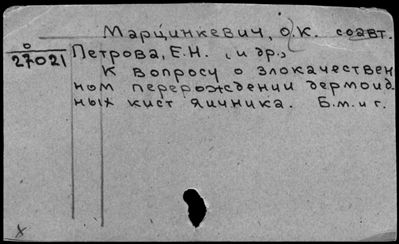 Марцинкевич, О.К. соавт.
О
27021
Петрова, Е.Н. , и др.,
К вопросу о злокачествен
ном перерождении дермоид
ных кист яичника. Б.м. и г.
х